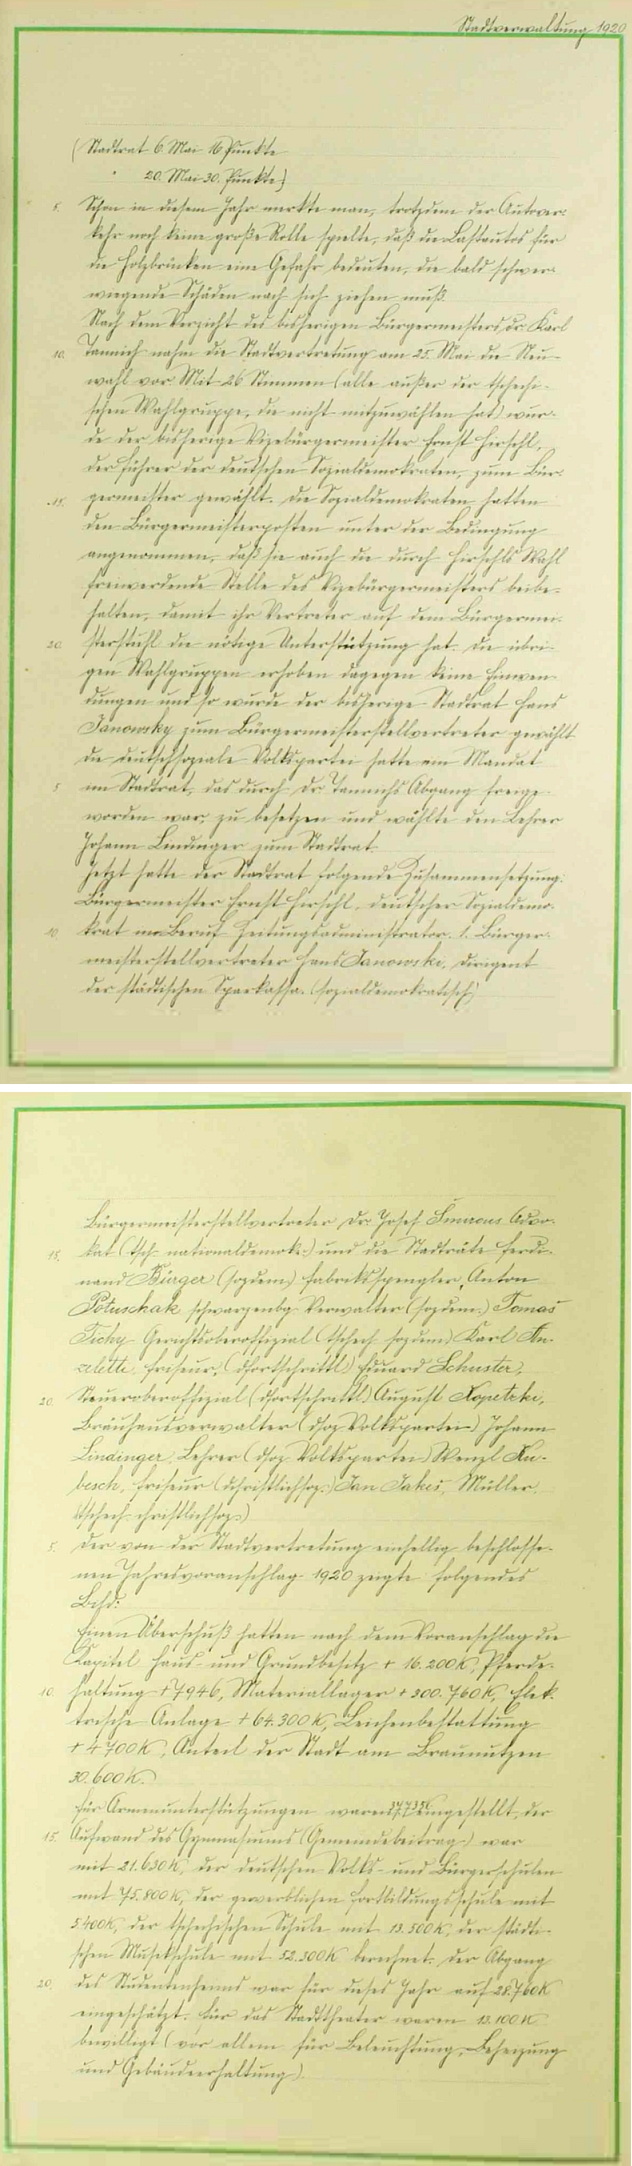 Stadtverwaltung 1920
(Stadtrat 6. Mai 16 Punkte
" 20. Mai 30. Punkte)
5. Schon in diesem Jahr merkte man, trotzdem der Autover-
kehr noch keine große Rolle spielte, daß die Lastautos für
die Holzbrücken eine Gefahr bedeuten, die bald schwer-
wiegende Schäden nach sich ziehen muß.
Nach dem Verzicht des bisherigen Bürgermeisters Dr. Karl
10. Tannich nahm die Stadtvertretung am 25. Mai die Neu-
wahl vor. Mit 26 Stimmen (alle außer der tschechi-
schen Wahlgruppe, die nicht mitzuwählen hat) wur-
de der bisherige Vizebürgermeister Ernst Hirschl,
der Führer der deutschen Sozialdemokraten, zum Bür-
15. germeister gewählt. Die Sozialdemokraten hatten
den Bürgermeisterposten unter der Bedingung
angenommen, daß sie auch die durch Hirschls Wahl
freiwerdende Stelle des Vizebürgermeisters beibe-
halten, damit ihr Vertreter auf dem Bürgermei-
20. sterstuhl die nötige Unterstützung hat. Die übri-
gen Wahlgruppen erhoben dagegen keine Einwen-
dungen und so wurde der bisherige Stadtrat Hans
Janowsky zum Bürgermeisterstellvertreter gewählt
Die deutschsoziale Volkspartei hatte ein Mandat
5 im Stadtrat, das durch Dr. Tannichs Abgang freige-
worden war, zu besetzen und wählte den Lehrer
Johann Lindinger zum Stadtrat.
Jetzt hatte der Stadtrat folgende Zusammensetzung:
Bürgermeister Ernst Hirschl, deutscher Sozialdemo-
10. krat im Beruf Zeitungsadministrator. 1. Bürger-
meisterstellvertreter Hans Janowski, Dirigent
der städtischen Sparkassa. (sozialdemokratisch)
Bürgermeisterstellvertreter Dr. Josef Šmrcus Advo-
15. kat (tsch. nationaldemokr.) und die Stadträte Ferdi-
nand Bürger (sozdem.) Fabrikspengler, Anton
Potuschak schwarzenbg. Verwalter (sozdem.) Tomas
Tichy Gerichtsoberoffizial (tschech. sozdem.) Karl An-
zeletti, Friseur, (dfortschrittl.) Eduard Schuster,
20. Steueroberoffizial (dfortschrittl.) August Kopetzki,
Brauhausverwalter (dsoz Volkspartei) Johann
Lindinger, Lehrer (dsoz Volkspartei) Wenzl Ku-
besch, Friseur (dchristlichsoz.) Jan Jakeš, Müller
(tschech. christlichsoz.)
5. Der von der Stadtvertretung einhellig beschlosse-
nen Jahresvoranschlag 1920 zeigte folgendes
Bild:
Einen Überschuß hatten nach dem Voranschlag die
Kapitel Haus- und Grundbesitz + 16.200K, Pferde-
10. haltung + 7946, Materiallager + 300.760K, Elek-
trische Anlage + 64.300K, Leichenbestattung
+ 4.700K, Anteil der Stadt am Braunutzen
30.600K.
Für Armenunterstützungen waren 37735K eingestellt, der
15. Aufwand des Gymnasiums (Gemeindebeitrag) war
mit 21.630K, der deutschen Volks- und Bürgerschulen
mit 75.800K, der gewerblichen Fortbildungsschule mit
5.400K, der tschechischen Schule mit 13.500K, der städti-
schen Musikschule mit 52.300K berechnet. Der Abgang
20. des Studentenheims war für dieses Jahr auf 28.760K
eingeschätzt. Für das Stadttheater waren 12.100K
bewilligt (vor allem für Beleuchtung, Beheizung
und Gebäudeerhaltung)